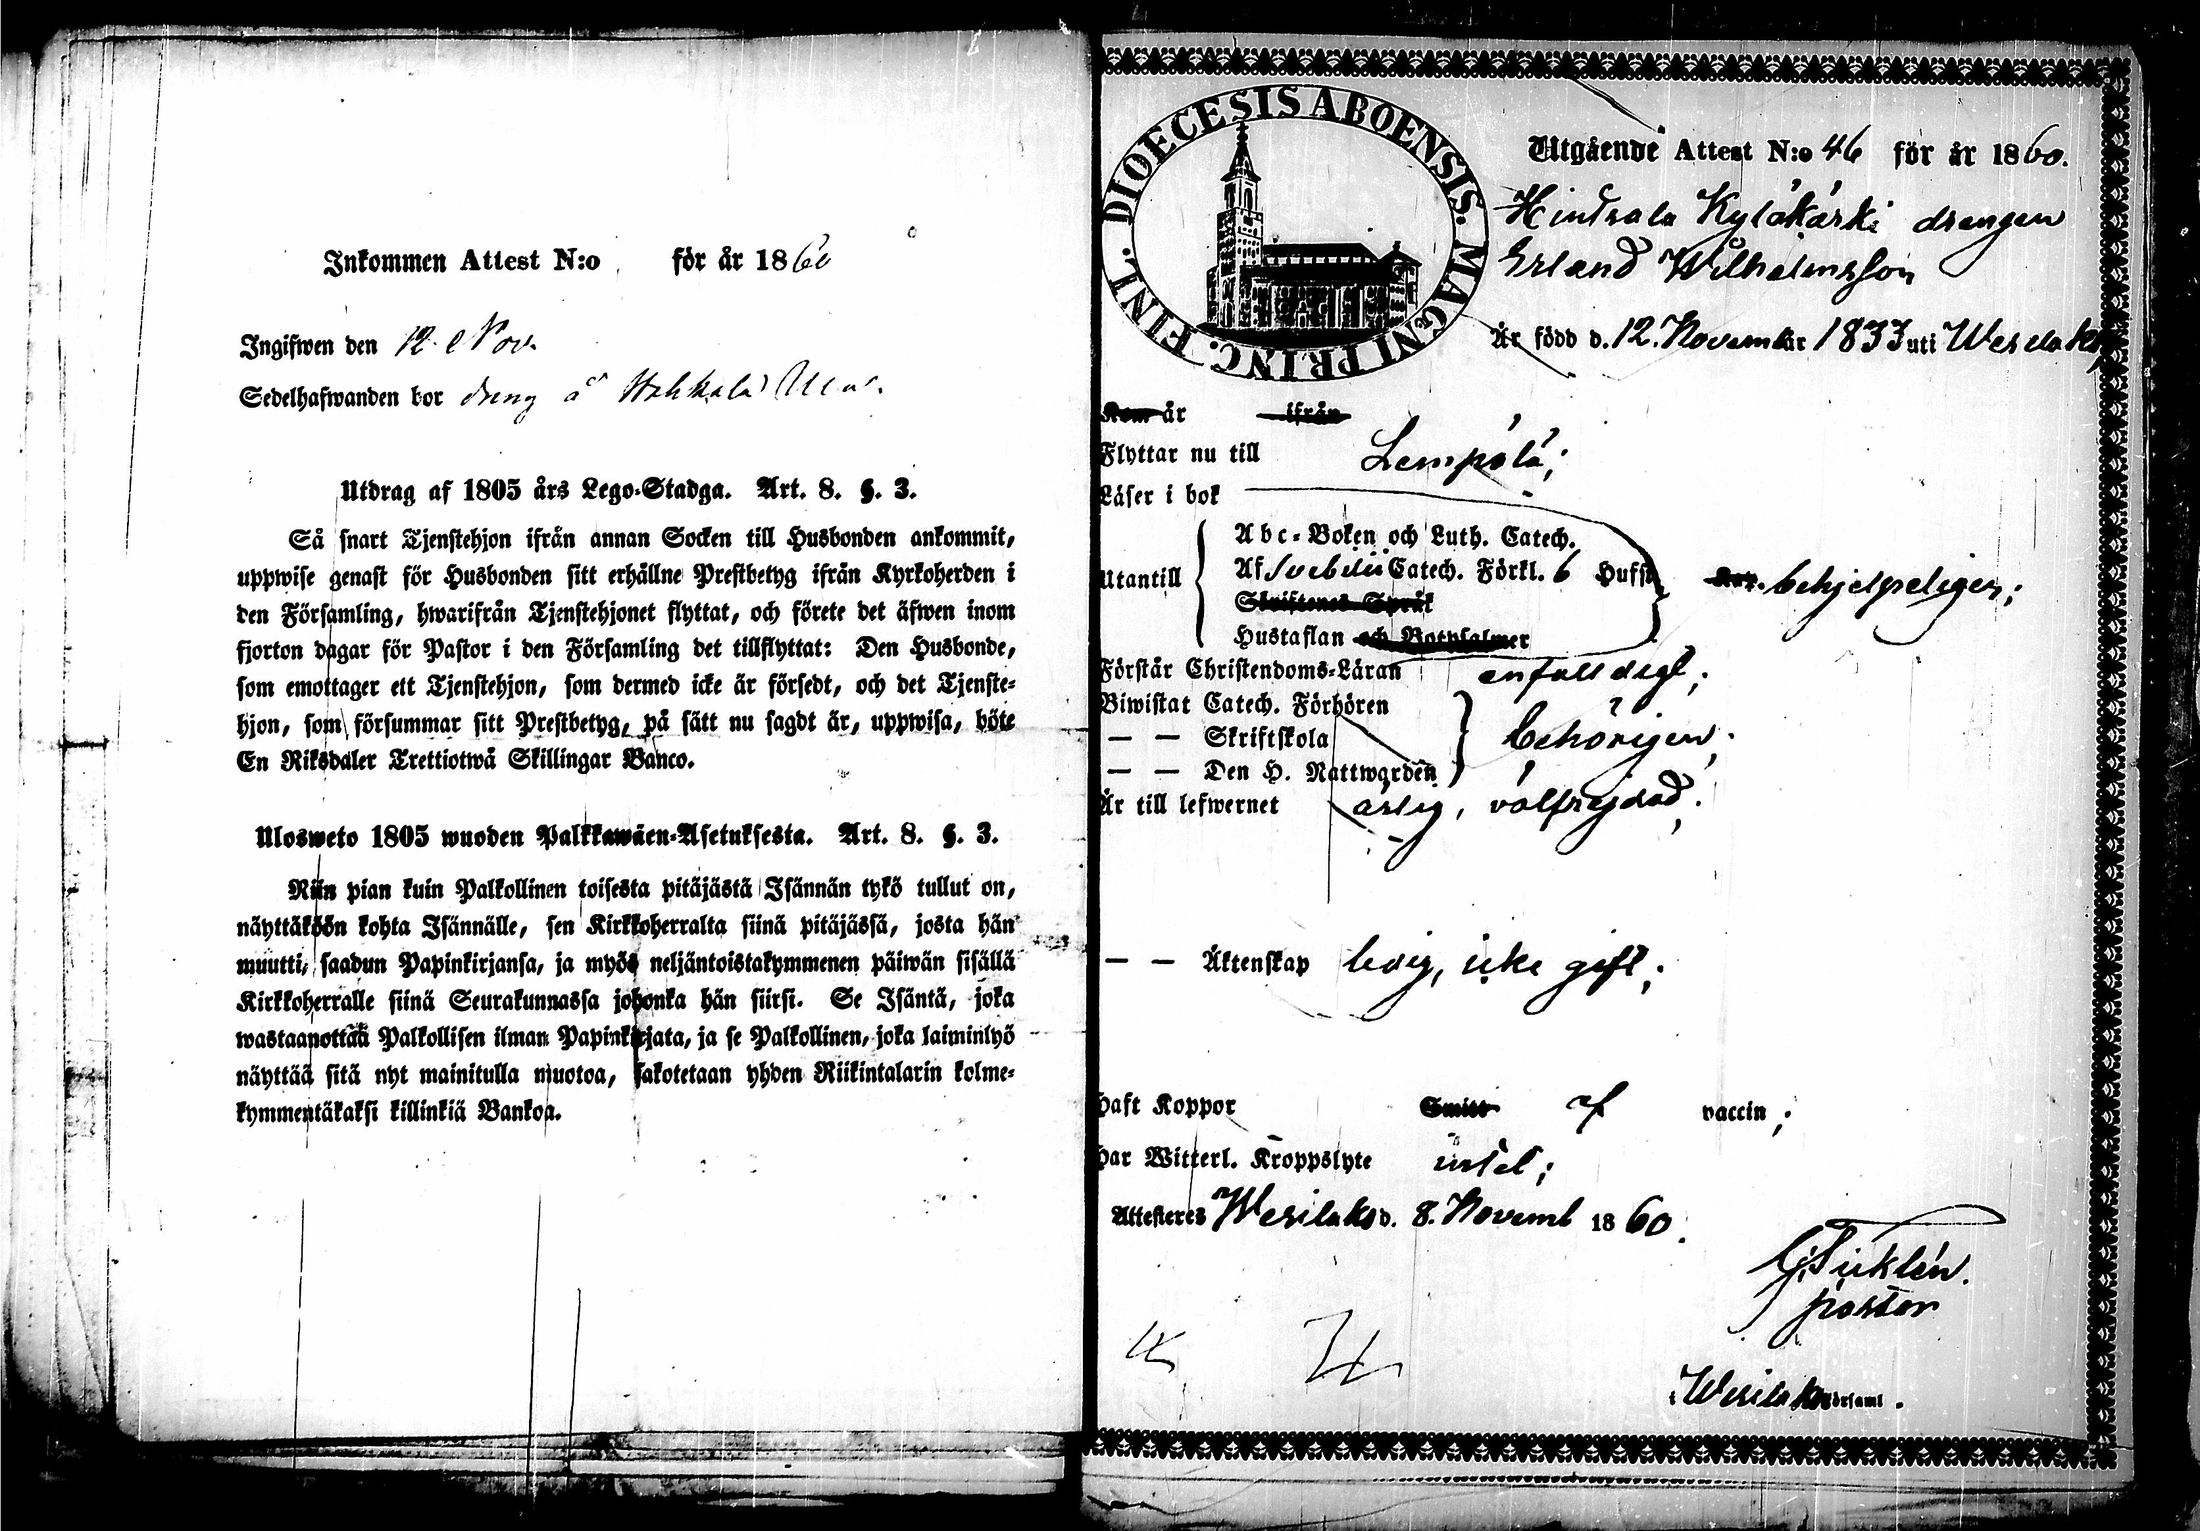 Inkommen Attest N:o för år 1860
Ingifwen den 12 Nov.
Sedelhafwanden bor dreng å
Utdrag af 1805 års Lego-Stadga. Art. 8. §. 3.
Så snart Tjenstehjon ifrån annan Socken till Husbonden ankommit,
uppwise genast för Husbonden sitt erhållne Prestbetyg ifrån Kyrkoherden i
den Församling, hwarifrån Tjenstehjonet flyttat, och förete det äfwen inom
fjorton dagar för Pastor i den Församling det tillflyttat: Den Husbonde,
som emottager ett Tjenstehjon, som dermed icke är försedt, och det Tjenste-
hjon, som försummar sitt Prestbetyg, på sätt nu sagdt är, uppwisa, böte
En Riksdaler Trettiotwå Skillingar Banco.
Ulosweto 1805 wuoden Palkkawäen-Asetuksesta. Art. 8. §. 3.
Niin pian kuin Palkollinen toisesta pitäjästä Isännän tykö tullut on,
näyttäköön kohta Isännälle, sen Kirkkoherralta siinä pitäjässä, josta hän
muutti, saadun Papinkirjansa, ja myös neljäntoistakymmenen päiwän sisällä
Kirkkoherralle siinä Seurakunnassa johonka hän siirsi. Se Isäntä, joka
wastaanottaa Palkollisen ilman Papinkirjata, ja se Palkollinen, joka laiminlyö
näyttää sitä nyt mainitulla muotoa, sakotetaan yhden Riikintalarin kolme-
kymmentäkaksi killinkiä Bankoa.
DIOECESIS ABOENSIS. MAGNI PRINC. FINL.
Utgående Attest N:o 46 för år 1860.
Hintsala Kyläkärki drengen
Erland Wilhelmsson
Är född d. 12. Novembr år 1833 uti Wesilaks;
Kom år ifrån
Flyttar nu till Lempälä;
Läser i bok
Utantill
Abc-Boken och Luth. Catech.
Af Svebilii Catech. Förkl. 6 Hufst. behjelpeligen;
Skriftenes Språk
Hustaflan och Botpsalmer
Förstår Christendoms-Läran enfaldigt;
Biwistat Catech. Förhören
— — Skriftskola behörigen;
— — Den H. Nattwarden
Är till lefwernet ärlig, välfrejdad;
— — Äktenskap ledig, icke gift;
Haft Koppor Smitt af vaccin;
Har Witterl. Kroppslyte intet;
Attesteres Wesilaks d. 8. Novemb 1860.
pastor
i Wesilaks Församl.